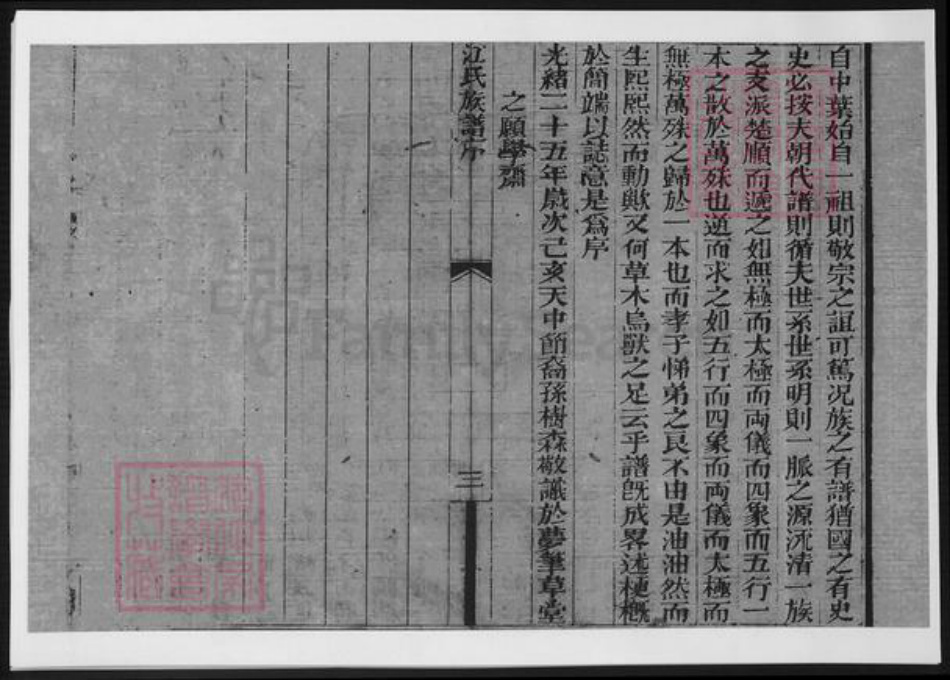 自中葉始自一祖則敬宗之誼可篤况族之有譜猶國之有史
史必按夫朝代譜則循夫世系世系明則一脈之源流清一族
之支派楚順而遞之如無極而太極而兩儀而四象而五行一
本之散於萬殊也逆而求之如五行而四象而兩儀而太極而
無極萬殊之歸於一本也而孝子悌弟之良不由是油油然而
生熙熙然而動歟又何草木鳥獸之足云乎譜旣成畧述梗槪
於簡端以誌意是爲序
光緒二十五年歲次己亥天中節裔孫樹森敬議於夢筆草堂
之願學齋
江氏族譜序
三